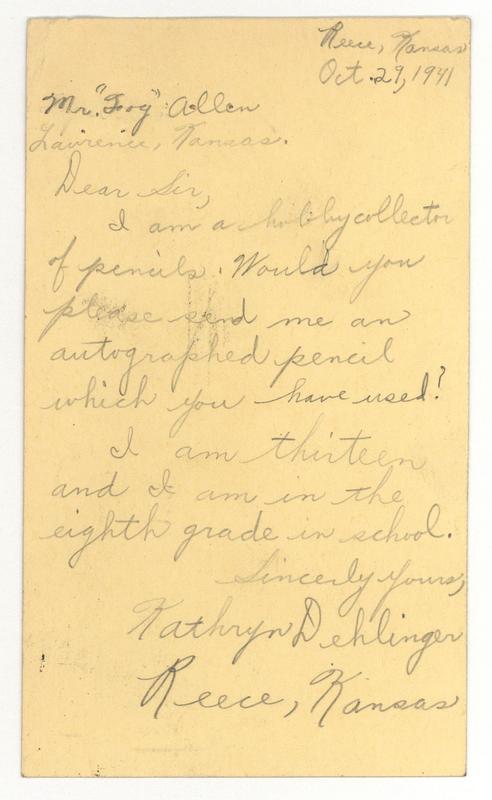 Reece, Kansas
Oct. 29, 1941
Mr. "Fog" Allen
Lawrence, Kansas.
Dear Sir,
I am a hobby collector
of pencils. Would you
please send me an
autographed pencil
which you have used?
I am thirteen
and I am in the
eighth grade in school.
Sincerly yours,
Kathryn Dehlinger
Reece, Kansas